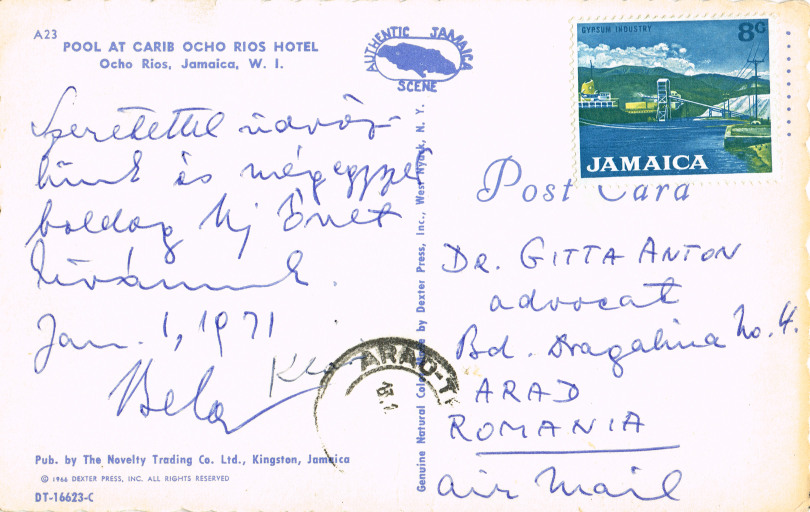 A23
POOL AT CARIB OCHO RIOS HOTEL
Ocho Rios, Jamaica, W. I.
AUTHENTIC JAMAICA
SCENE
Szeretettel üdvöz-
lünk és mégegyszer
boldog Uj Évet
kivánunk.
Jan. 1, 1971
Bela
Pub. by The Novelty Trading Co. Ltd., Kingston, Jamaica
© 1966 DEXTER PRESS, INC. ALL RIGHTS RESERVED
DT-16623-C
Genuine Natural Color Made by Dexter Press, Inc., West Nyack, N. Y.
GYPSUM INDUSTRY
8c
JAMAICA
Post Card
DR. GITTA ANTON
advocat
Bd. Dragalina No. 4.
ARAD
ROMANIA
air Mail
ARAD-